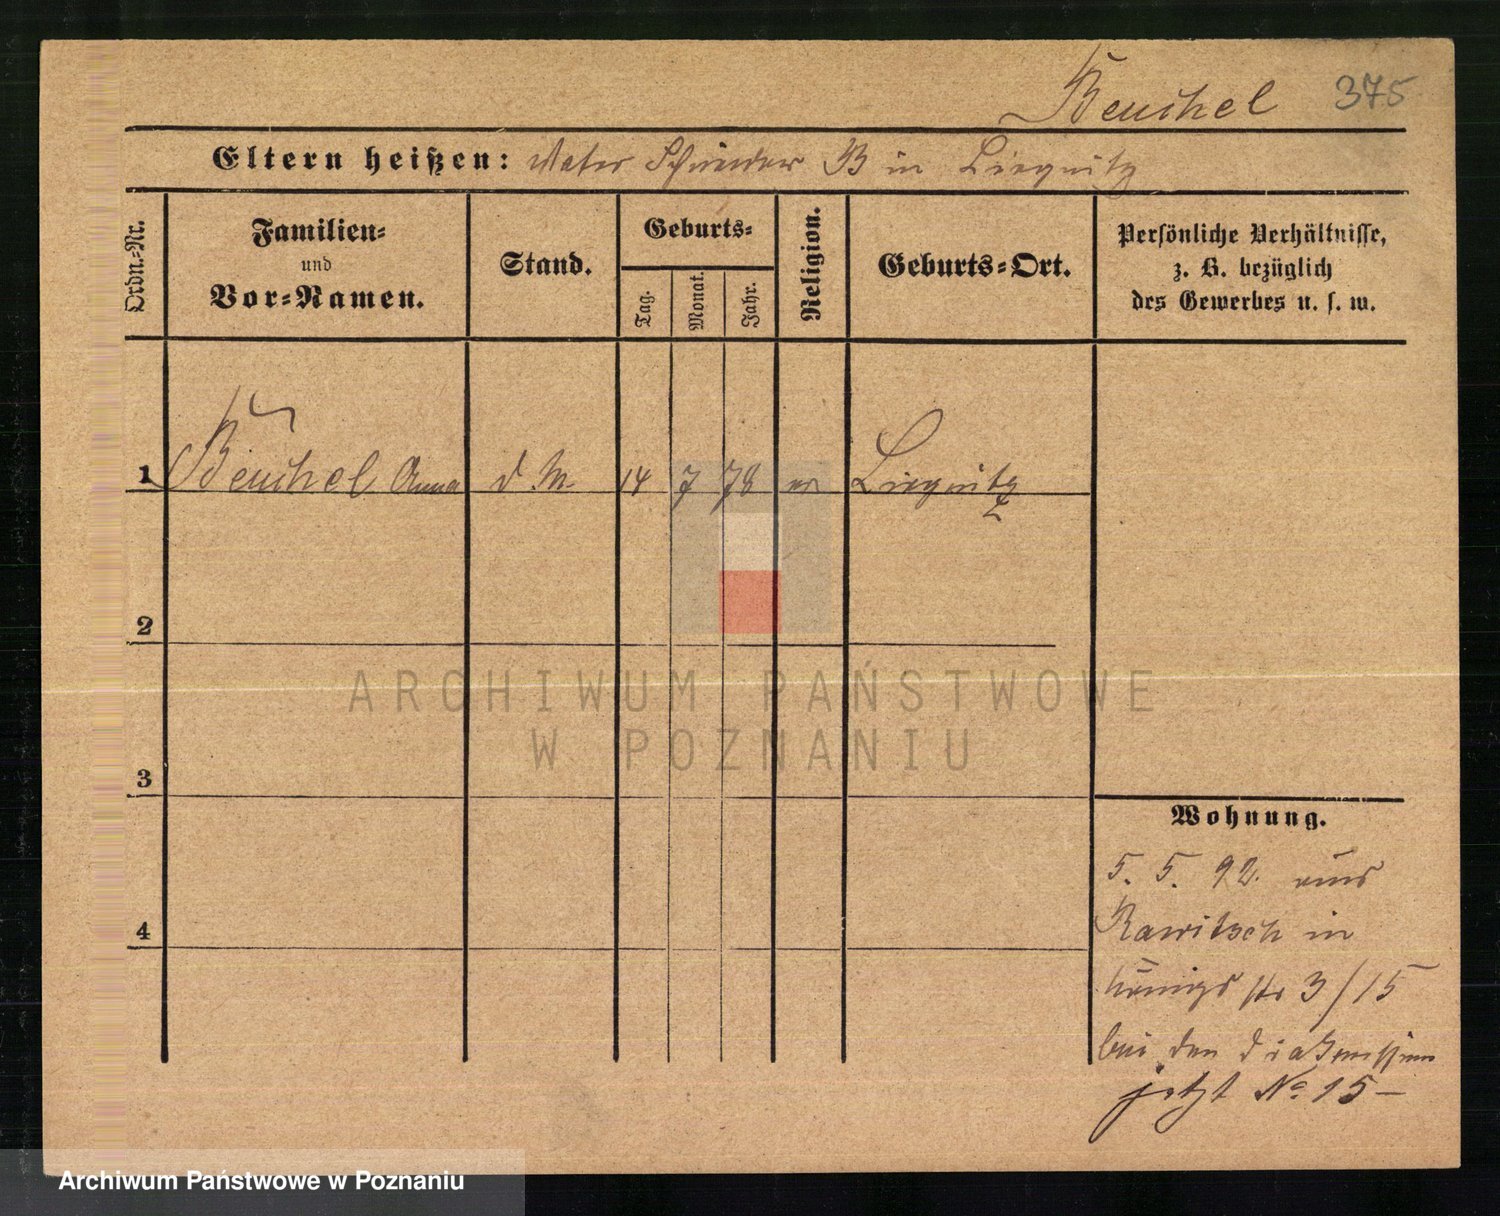 Beuchel 375
Eltern heißen: Vater Schneider B in Liegnitz
Ordn.-Nr.
Familien-
und
Vor-Namen.
Stand.
Geburts-
Tag.
Monat.
Jahr.
Religion.
Geburts-Ort.
Persönliche Verhältnisse,
z. B. bezüglich
des Gewerbes u. s. w.
1 Beuchel Anna d. M. 14 7 78 ev Liegnitz
2
ARCHIWUM PAŃSTWOWE
W POZNANIU
3
4
Wohnung.
5. 5. 92. aus
Rawitsch in
Königs str 3/15
bei den
jetzt No 15 –
Archiwum Państwowe w Poznaniu